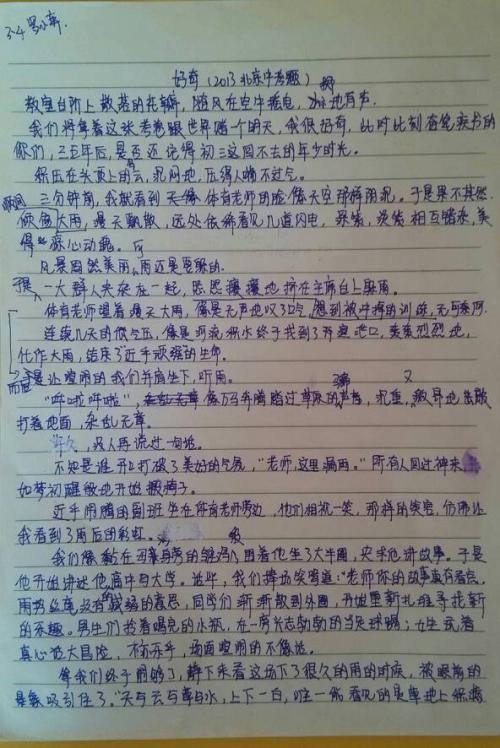 好奇（2013北京中考题）
教室台阶上散落的花瓣，随风在空中摇曳，地有声.
我们将拿着这张考卷跟世界赌个明天，我很好奇，此时此刻奋笔疾书的
你们，三五年后，是否还记得初三这回不去的年少时光。
积压在头顶上的云，沉闷地，压得人喘不过气。
三分钟前，我就看到体育老师的脸像天空那样阴沉。于是果不其然
倾盆大雨，漫天飘散，远处依稀看见几道闪电，相互映衬，美
得惊心动魄。
风景固然美丽，雨还是要躲的.
于是一大群人夹杂在一起，熙熙攘攘地挤在主席台上躲雨。
体育老师望着漫天大雨，像是无声地叹了口气，想到被冲掉的训练，无可奈何。
连续几天的低气压，像是河流积水终于找到了开venue地口，轰轰烈烈地，
化作大雨，结束了近乎顽强的生命。
于是让喧闹的我们并肩坐下，听雨。
“哗啦哗啦”，像万马奔腾踏过草原的声音，沉重，又
打着地面，杂乱无章。
许久，没人再说过一句话。
不知是谁开口打破了美好的气氛，“老师，这里漏雨。”所有人回过神来，
如梦初醒般地开始搬椅子。
近乎闹腾的副班坐在体育老师旁边，他们相视一笑，那样的笑容，仿佛让
我看到了雨后的彩虹。
我们像黏在母鸡身旁的雏鸡，围着他坐了大半圈，央求他讲故事。于是
他开始讲述他高中与大学。这些，我们捧场笑骂道：“老师你的故事真有看点。
雨势丝毫没有减弱的意思，同学们渐渐散到外围，开始重新扎堆寻找新
的乐趣。男生们拾着喝完的水瓶，在一旁斗志勃勃的当足球踢；女生玩着
真心话大冒险，不亦乐乎，场面喧闹的不像话。
等我们终于闹够了，静下来看这场下了很久的雨的时候，被眼前的
景象吸引住了。“天与云与山与水，上下一白，唯一能看见的是草地上积攒